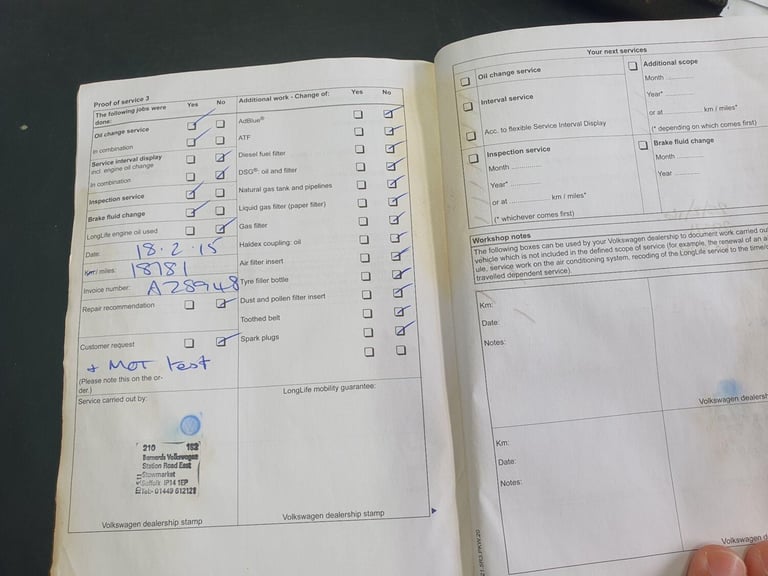 Proof of service 3
The following jobs were done:
Yes
No
Oil change service
in combination
Service interval display
incl. engine oil change
in combination
Inspection service
Brake fluid change
LongLife engine oil used
Date: 18.2.15
Km/ miles: 18781
Invoice number: A28948
Repair recommendation
Customer request
+ MOT test
(Please note this on the or-
der.)
Service carried out by:
210 182
Barnards Volkswagen
Station Road East
Stowmarket
Suffolk IP14 1EP
Tel:- 01449 612121
Volkswagen dealership stamp
Additional work - Change of:
Yes
No
AdBlue®
ATF
Diesel fuel filter
DSG®: oil and filter
Natural gas tank and pipelines
Liquid gas filter (paper filter)
Gas filter
Haldex coupling: oil
Air filter insert
Tyre filler bottle
Dust and pollen filter insert
Toothed belt
Spark plugs
LongLife mobility guarantee:
Volkswagen dealership stamp
Your next services
Oil change service
Interval service
Acc. to flexible Service Interval Display
Inspection service
Month ............
Year* ............
or at ............ km / miles*
(* whichever comes first)
Additional scope
Month ............
Year* ............
or at ............ km / miles*
(* depending on which comes first)
Brake fluid change
Month ............
Year ............
Workshop notes
The following boxes can be used by your Volkswagen dealership to document work carried ou
vehicle which is not included in the defined scope of service (for example, the renewal of an a
ule, service work on the air conditioning system, recoding of the LongLife service to the time/
travelled dependent service).
Km:
Date:
Notes:
Volkswagen dealersh
Km:
Date:
Notes:
Volkswagen d